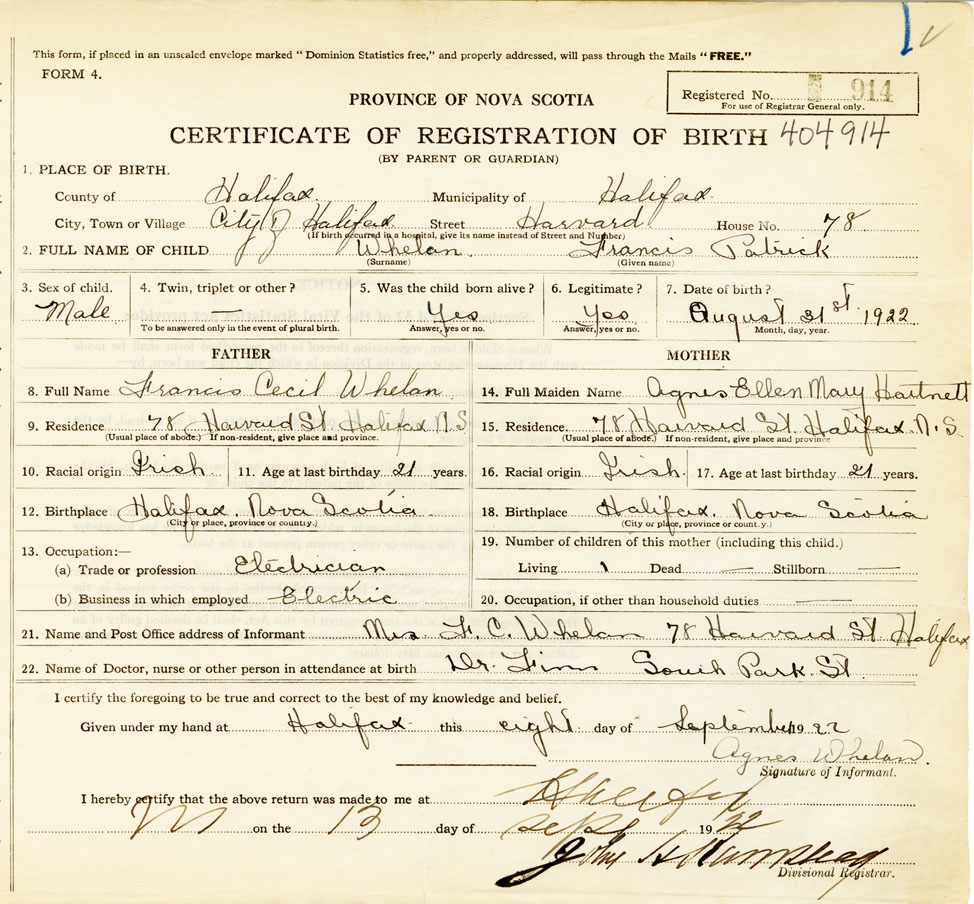 This form, if placed in an unscaled envelope marked "Dominion Statistics free," and properly addressed, will pass through the Mails "FREE."
FORM 4.
Registered No. 914
For use of Registrar General only.
PROVINCE OF NOVA SCOTIA
CERTIFICATE OF REGISTRATION OF BIRTH 404914
(BY PARENT OR GUARDIAN)
1. PLACE OF BIRTH.
County of Halifax Municipality of Halifax
City, Town or Village City of Halifax Street Harvard House No. 78
(If birth occurred in a hospital, give its name instead of Street and Number)
2. FULL NAME OF CHILD Whelan Francis Patrick
(Surname) (Given name)
3. Sex of child. 4. Twin, triplet or other? 5. Was the child born alive? 6. Legitimate? 7. Date of birth?
Male — Yes Yes August 31st 1922
To be answered only in the event of plural birth. Answer, yes or no. Answer, yes or no. Month, day, year.
FATHER
8. Full Name Francis Cecil Whelan
9. Residence 78 Harvard St. Halifax N.S
(Usual place of abode.) If non-resident, give place and province.
10. Racial origin Irish 11. Age at last birthday 21 years.
12. Birthplace Halifax, Nova Scotia
(City or place, province or country.)
13. Occupation:—
(a) Trade or profession Electrician
(b) Business in which employed Electric
MOTHER
14. Full Maiden Name Agnes Ellen Mary Hartnett
15. Residence. 78 Harvard St. Halifax. N.S.
(Usual place of abode.) If non-resident, give place and province
16. Racial origin Irish 17. Age at last birthday 21 years.
18. Birthplace Halifax, Nova Scotia
(City or place, province or county.)
19. Number of children of this mother (including this child.)
Living 1 Dead — Stillborn —
20. Occupation, if other than household duties —
21. Name and Post Office address of Informant Mrs. F. C. Whelan 78 Harvard St Halifax
22. Name of Doctor, nurse or other person in attendance at birth Dr. Finn South Park St
I certify the foregoing to be true and correct to the best of my knowledge and belief.
Given under my hand at Halifax this eight day of September 1922
Agnes Whelan.
Signature of Informant.
I hereby certify that the above return was made to me at Halifax
on the 13 day of Sept 1922
John
Divisional Registrar.